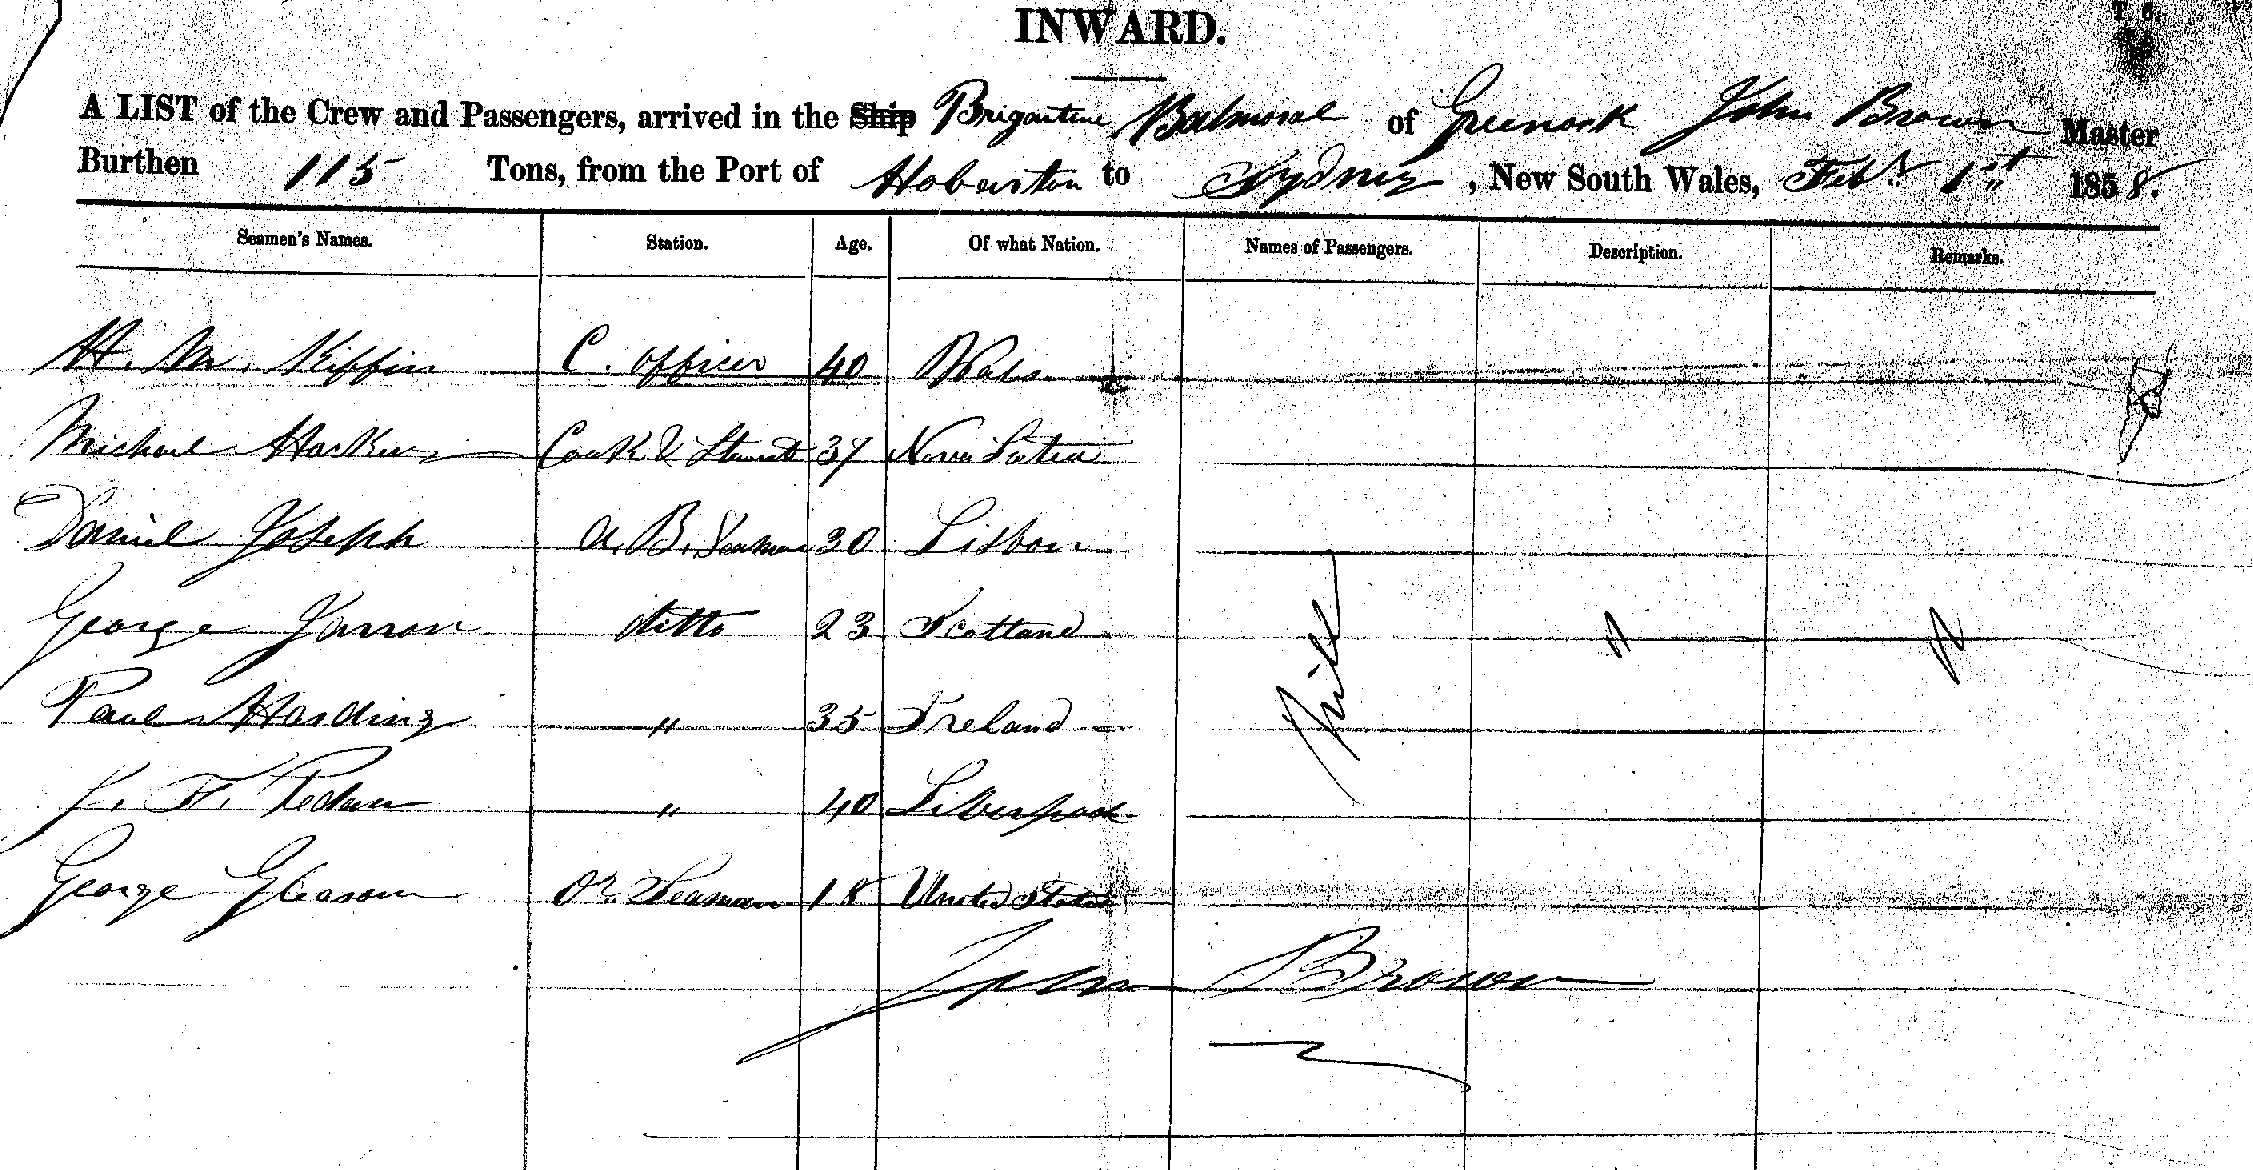 INWARD.
A LIST of the Crew and Passengers, arrived in the Ship Brigantine Balmoral of Greenock John Brown Master
Burthen 115 Tons, from the Port of Hobarton to Sydney, New South Wales, Feby 1st 1858.
Seamen's Names. Station. Age. Of what Nation. Names of Passengers. Description. Remarks.
H. M. Kiffin C. Officer 40 Wales
Michael 37 Nova Scotia
Daniel Joseph A. B. Seaman 30 Lisbon
George Jarron ditto 23 Scotland
Paul Harding " 35 Ireland
J. F. " 40 Liverpool
George Gleason Or. Seaman 18 United States
Nill " "
John Brown